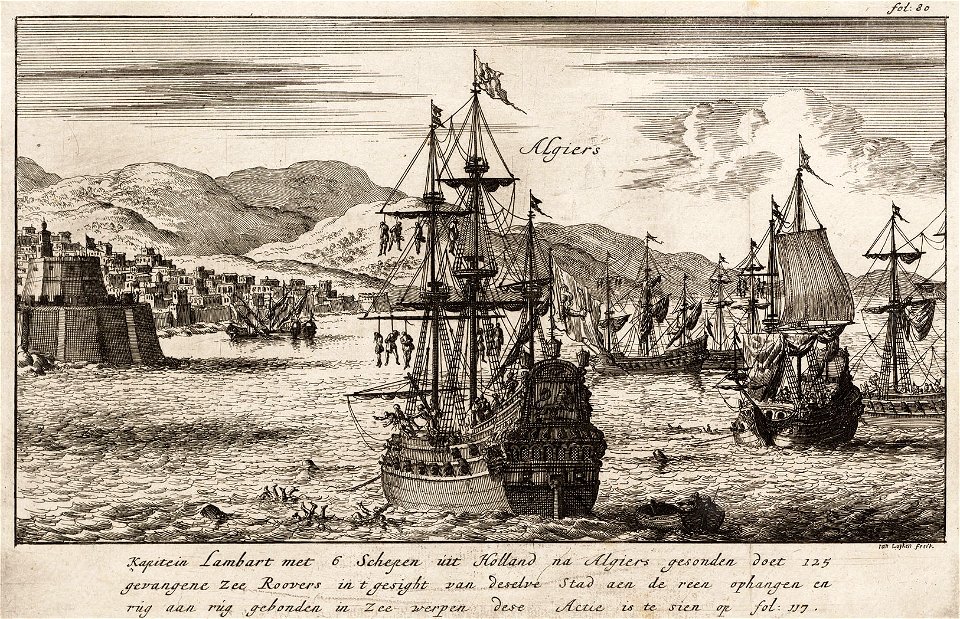 fol: 80
Algiers
Ian Luyken fecit.
Kapitein Lambart met 6 Schepen uit Holland na Algiers gesonden doet 125
gevangene Zee Roovers in t gesight van deselve Stad aen de reen ophangen en
rúg aan rúg gebonden in Zee werpen dese Actie is te sien op fol: 117.